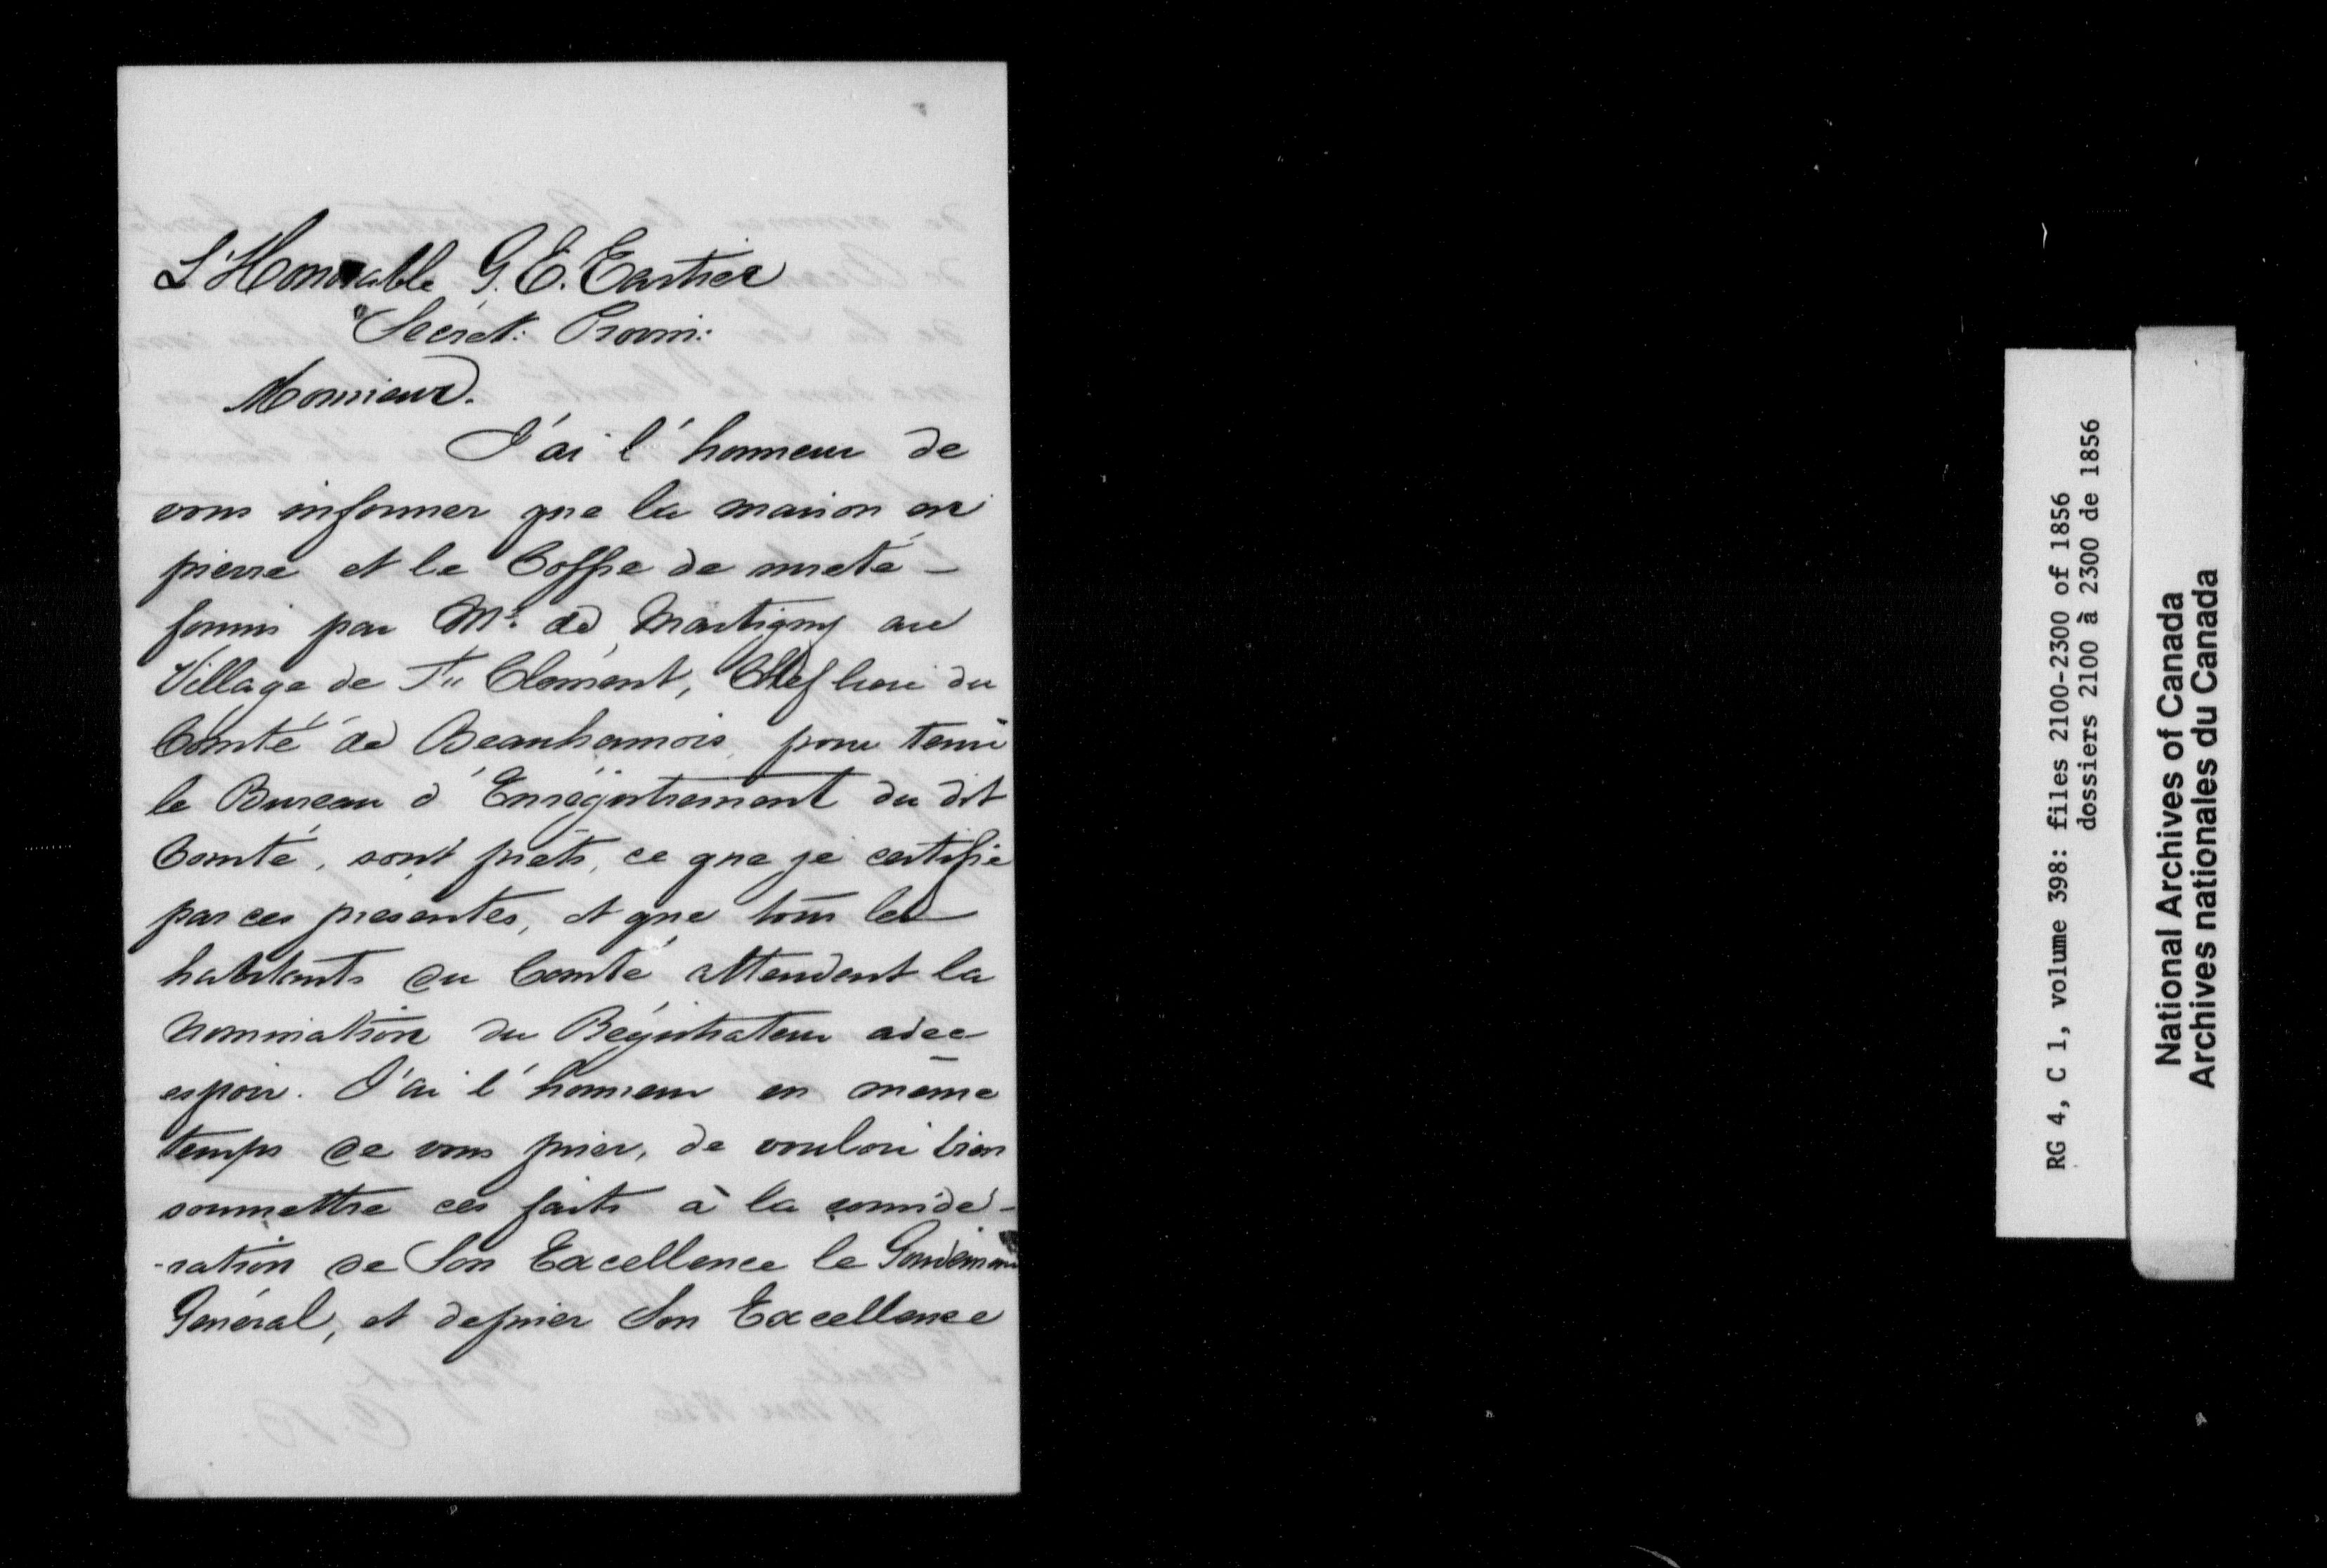 L'Honorable G. E. Cartier
Secrét: Provin:
Monsieur.
J'ai l'honneur de
vous informer que la maison en
pierre et le Coffre de sureté
fourni par Mr. de Martigny au
Village de St. Clément, Chef lieu du
Comté de Beauharnois, pour tenir
le Bureau d'Enrégistrement du dit
Comté, sont prêts, ce que je certifie
par ces présentes, et que tous les
habitants du Comté attendent la
nomination du Régistrateur avec
espoir. J'ai l'honneur en même
temps de vous prier, de vouloir bien
soumettre ces faits à la considé-
-ration de Son Excellence le Gouverneur
Général, et de prier Son Excellence
RG 4, C 1, volume 398: files 2100-2300 of 1856
dossiers 2100 à 2300 de 1856
National Archives of Canada
Archives nationales du Canada